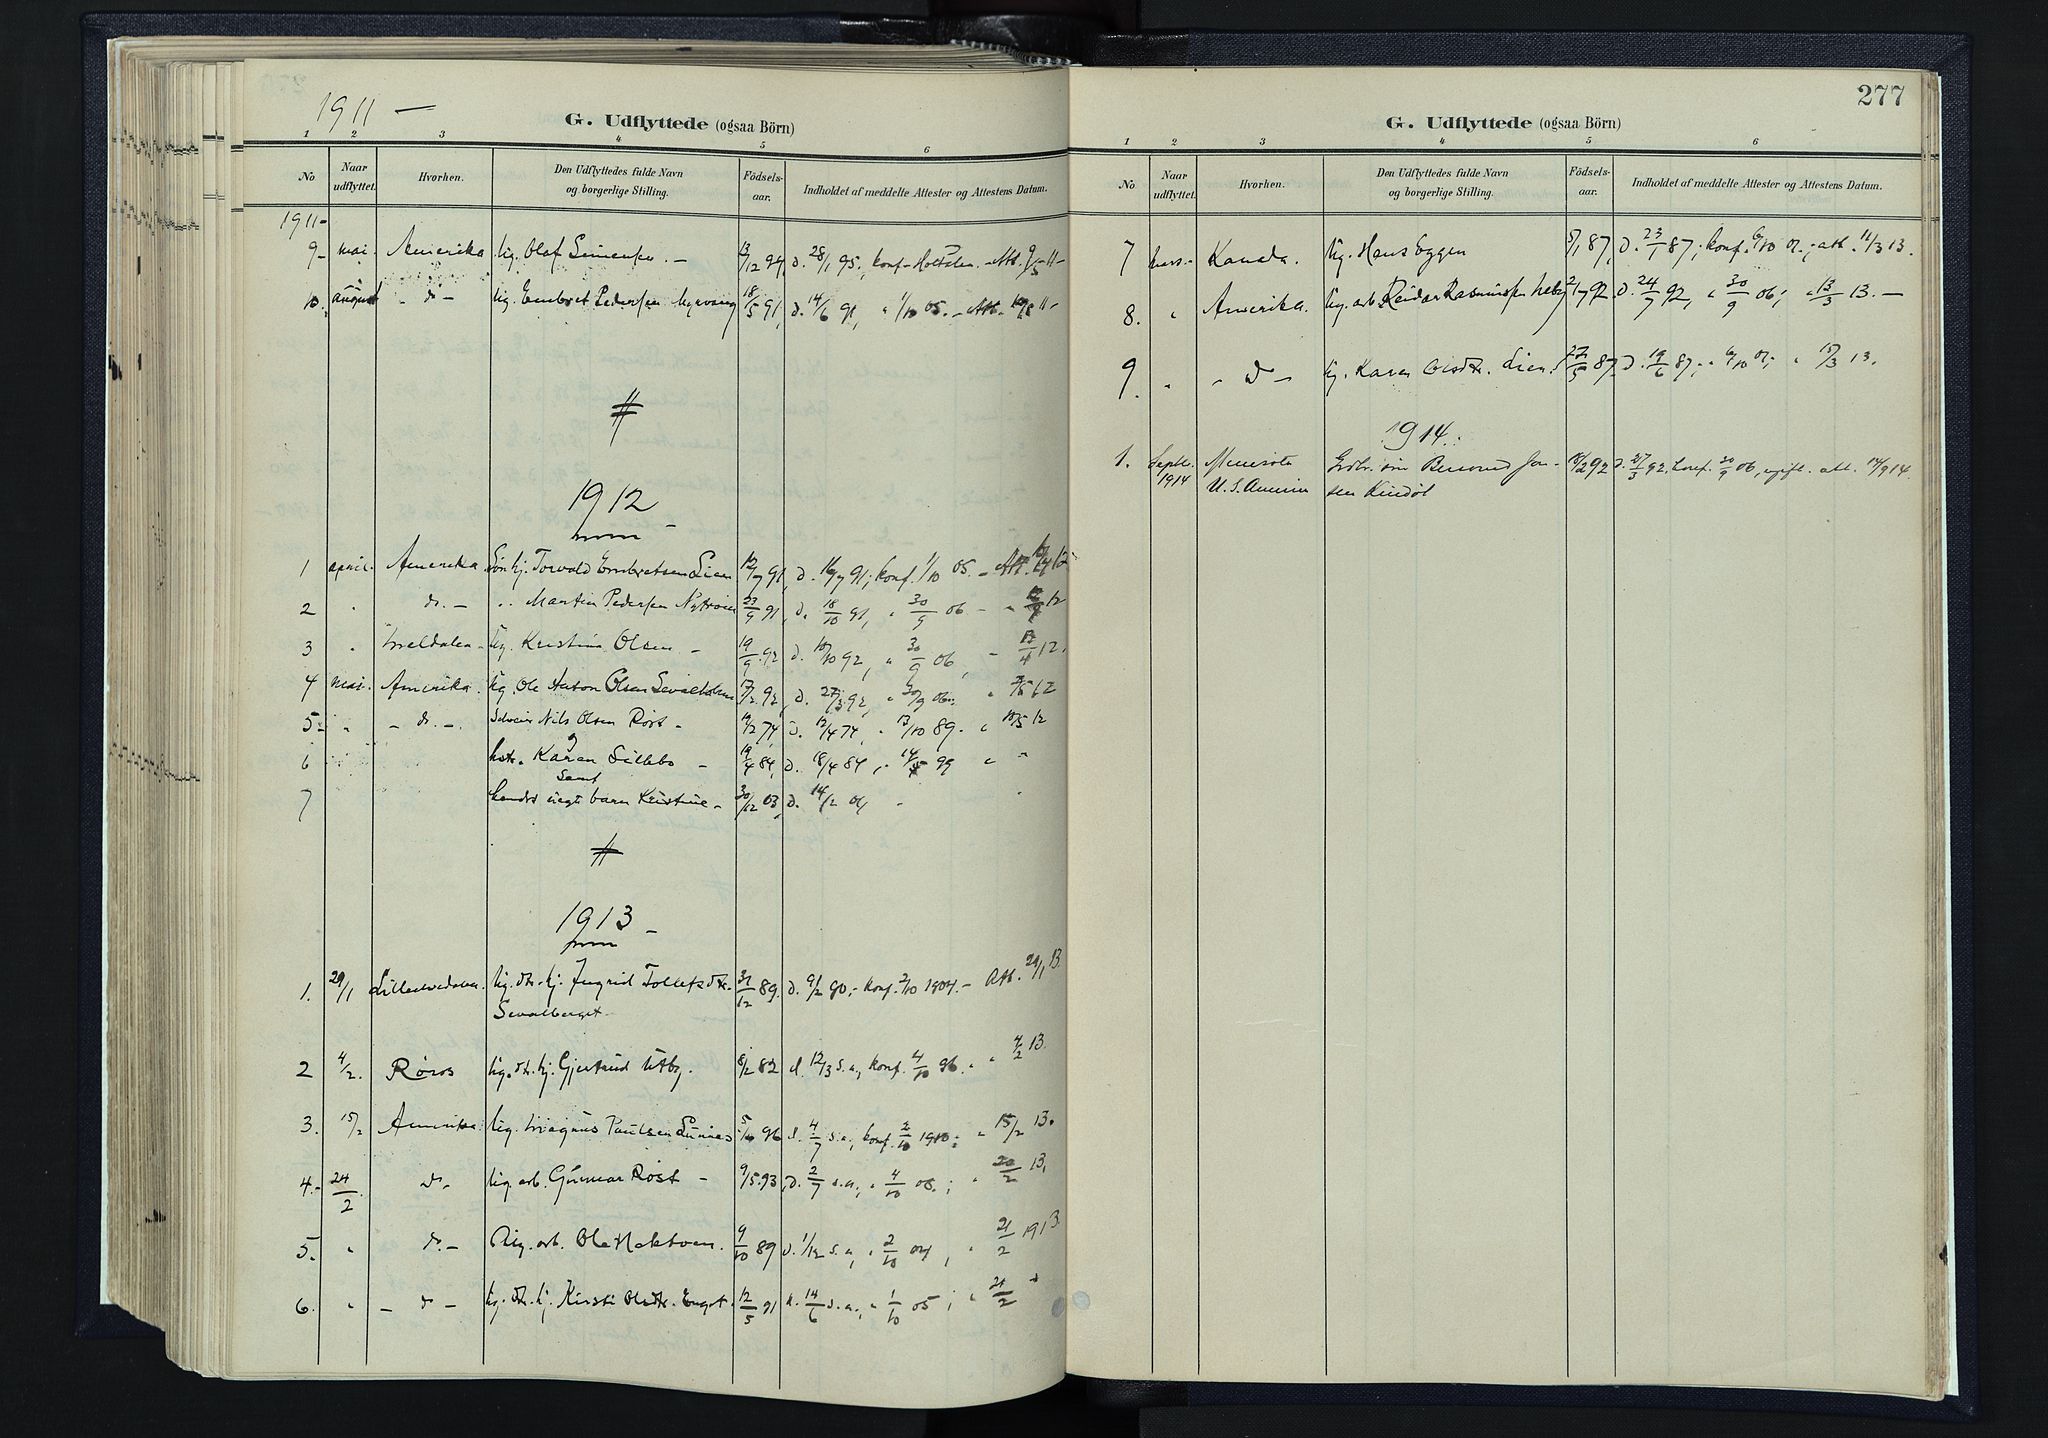 1911 –
G. Udflyttede (ogsaa Börn)
1 2 3 4 5 6
No
Naar udflyttet.
Hvorhen.
Den Udflyttedes fulde Navn og borgerlige Stilling.
Födsels-aar.
Indholdet af meddelte Attester og Attestens Datum.
1911 –
9 – mai. Amerika Ug. Olaf Simensen. – d. 28/1 95. konf. Holtdalen. – Att. 9/5 11 –
10. august – d – ug. Embret Pedersen 18/5 91, d. 14/6 91, " 1/10 05. – Att. 11 –
#
1912
1 april. Amerika Torvald Embretsen Lien 12/7 91, d. 16/7 91; konf. 1/10 05. – Att. 12
2 " d. – " Martin Pedersen Nytrøen 23/9 91, d. 18/10 91, " 30/9 06 – " 12
3 " Meldalen – ug. Kristina Olsen – 19/9 92, d. 10/10 92, " 30/9 06, – 12.
4 mai. Amerika. ug. Ole Anton Olsen 17/2 92, d. 27/3 92, " 30/9 06; " 12
5. " – d. – Nils Olsen Röst – 19/2 74, d. 12/4 74, " 13/10 89. " 10/5 12
6 Karen Lillebo – 19/4 84, d. 18/4 84, " 99 " "
samt
7 hendes uegte barn Kristine – 30/12 03, d. 14/2 04 " "
#
1913 –
1. 29/1 Lilleelvedalen. ug. dtr. hj. Ingrid Tollefsdtr. 31/12 89. d. 9/2 90; – konf. 2/10 1904. – Att. 29/1 13.
Sevalberget –
2 4/2. Røros ug. dtr. hj. Gjertrud Utby. 8/2 82 d. 12/3 s.a, konf. 4/10 96. " 4/2 13.
3. 15/2 Amerika ug. Magnus Paulsen 96 d. 4/7 s.a; konf. 2/10 1910; " 15/2 13.
4. – 24/2. d. – ug. arb. Gunnar Röst – 9/5 93, d. 2/7 s.a., " 4/10 08. ; " 20/2 13.
5. " d. – Ug. arb. Ole 9/10 89 d. 1/12 s.a, " 2/10 04, " 21/2 1913.
6. " – d – ug. dtr. hj. Kirsti Olsdtr. 12/5 91 d. 14/6 s.a. " 1/10 05; " 21/2
277
G. Udflyttede (ogsaa Börn)
1 2 3 4 5 6
No.
Naar udflyttet.
Hvorhen.
Den Udflyttedes fulde Navn og borgerlige Stilling.
Födsels-aar.
Indholdet af meddelte Attester og Attestens Datum.
7 mars. – Kanada. Ug. Hans Eggen 5/1 87, d. 23/1 87; konf. 6/10 01. ; att. 11/3 13.
8. " Amerika. ug. arb. Reidar Rasmussen 92, d. 24/7 92, " 30/9 06; " 13/3 13. –
9. " – d – ug. Karen Olsdtr. Lien. 22/5 87, d. 19/6 87; " 6/10 01; " 15/3 13.
1914.
1. Septbr. Minesota 18/2 92 d. 27/3 92, konf. 30/9 06, ugift. att. 14/9 14.
1914 U.S. Amerika